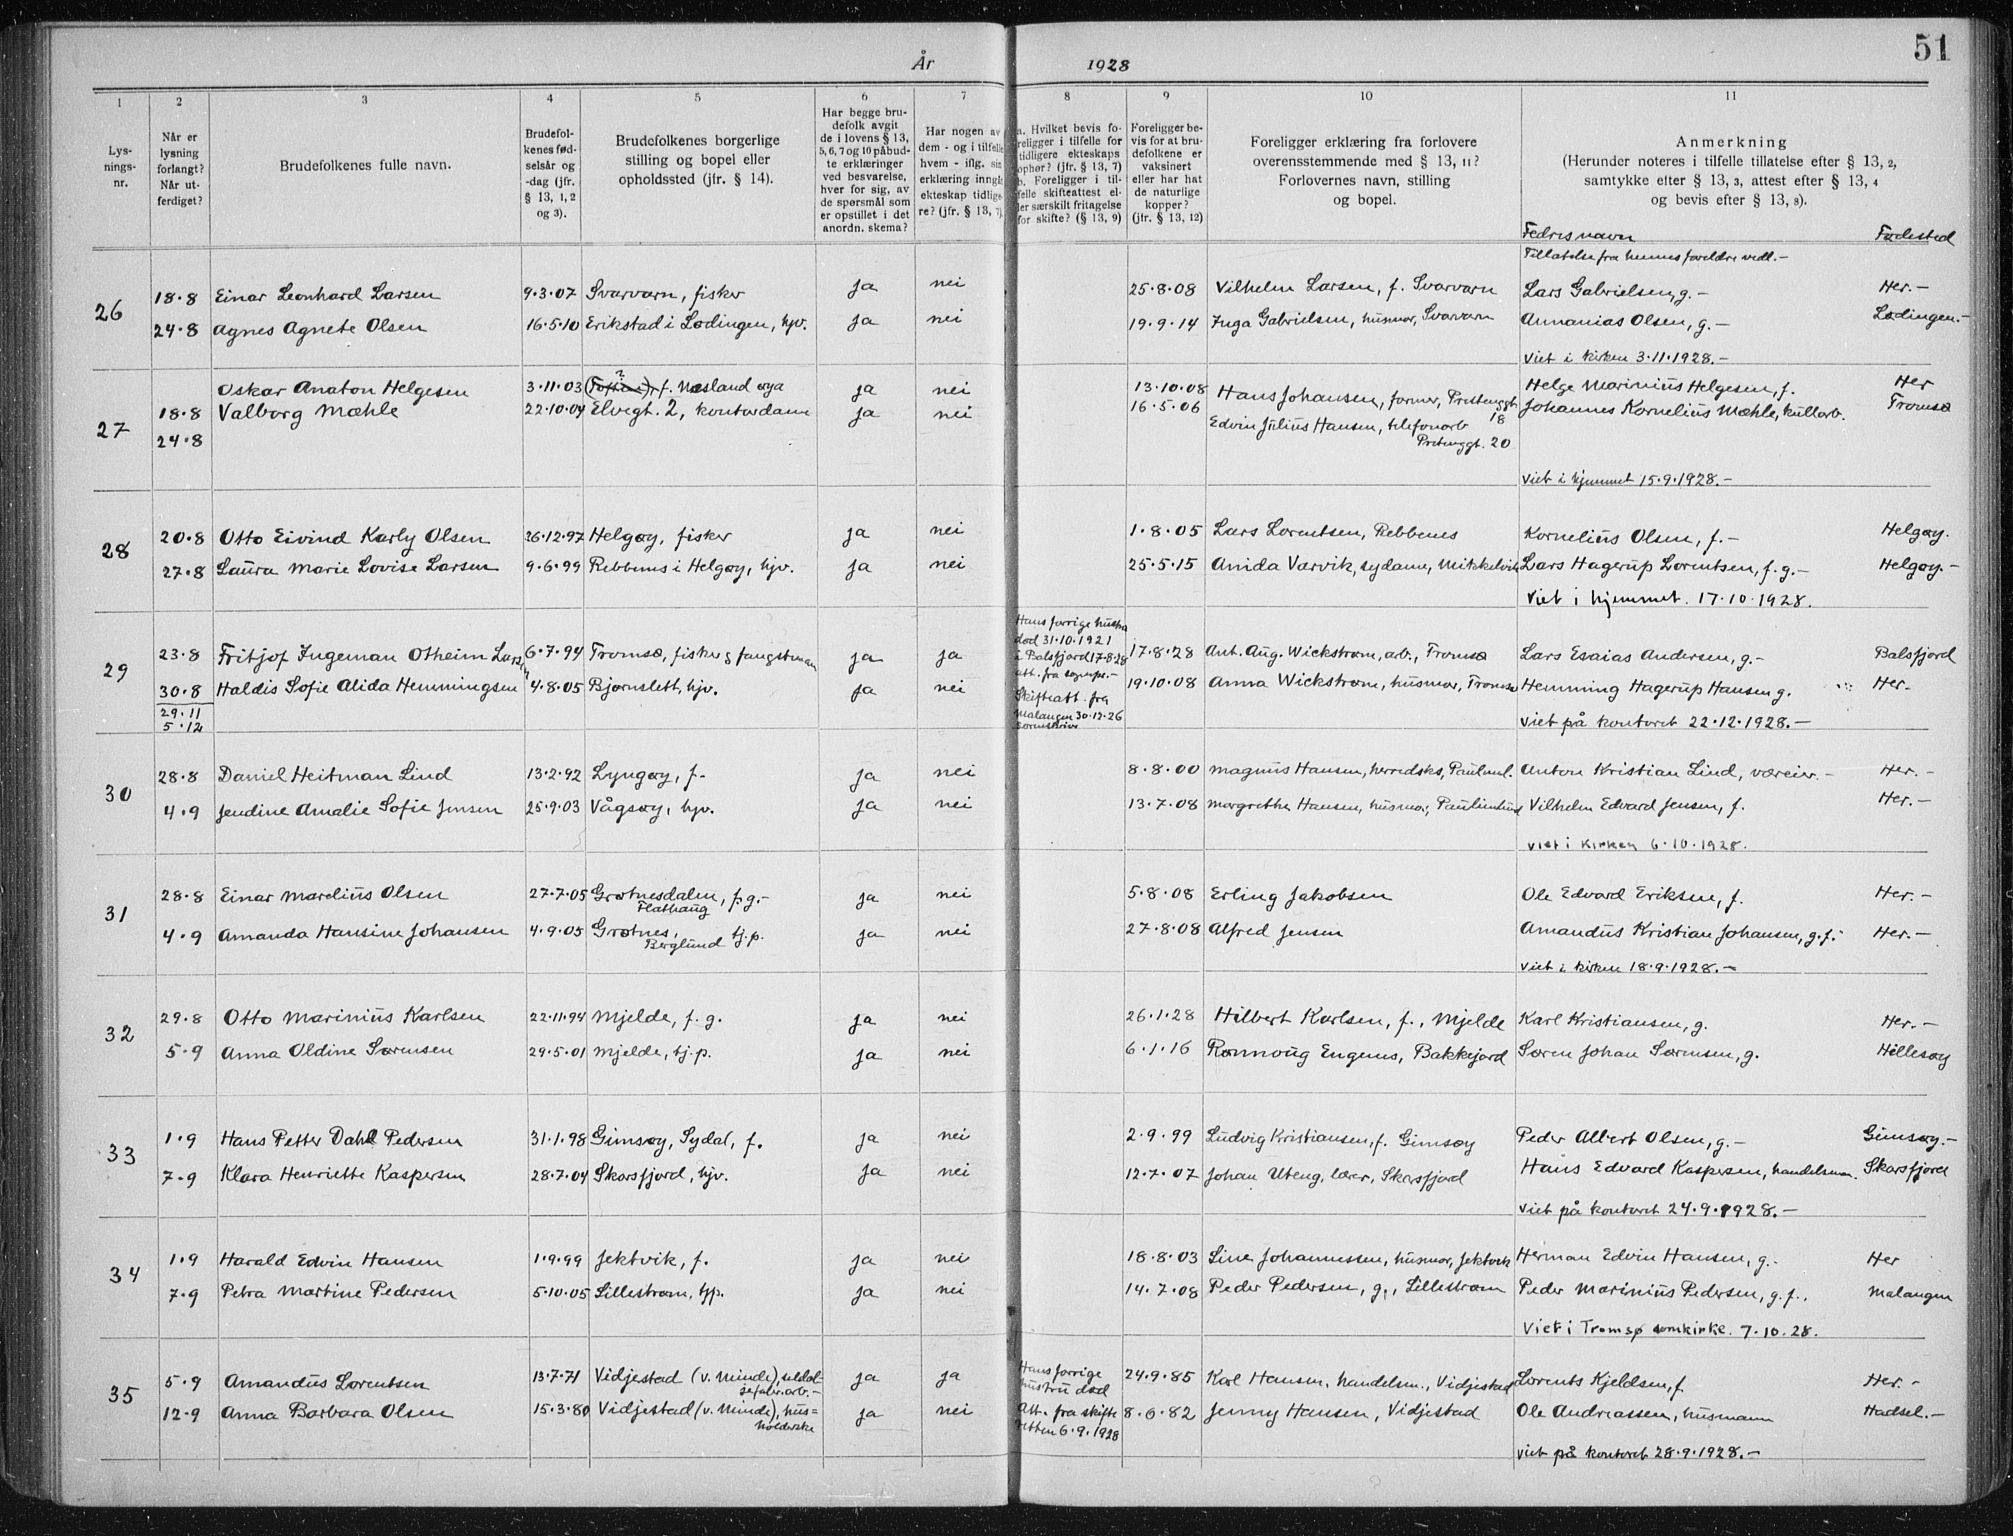 51
År 1928
1 2 3 4 5 6 7 8 9 10 11
Lys-
nings-
nr.
Når er
lysning
forlangt?
Når ut-
ferdiget?
Brudefolkenes fulle navn.
Brudefol-
kenes fød-
selsår og
-dag (jfr.
§ 13, 1, 2
og 3).
Brudefolkenes borgerlige
stilling og bopel eller
opholdssted (jfr. § 14).
Har begge bru-
defolk avgit
de i lovens § 13,
5, 6, 7 og 10 påbud-
te erklæringer
ved besvarelse,
hver for sig, av
de spørsmål som
er opstillet i det
anordn. skema?
Har nogen av
dem - og i tilfelle
hvem - iflg. sin
erklæring inngåt
ekteskap tidlige-
re? (jfr. § 13, 7)
a. Hvilket bevis fo-
religger i tilfelle for
tidligere ekteskaps
ophør? (jfr. § 13, 7)
b. Foreligger i til-
felle skifteattest el-
ler særskilt fritagelse
for skifte? (§ 13, 9)
Foreligger be-
vis for at bru-
defolkene er
vaksinert
eller har hat
de naturlige
kopper?
(jfr. § 13, 12)
Foreligger erklæring fra forlovere
overensstemmende med § 13, 11?
Forlovernes navn, stilling
og bopel.
Anmerkning
(Herunder noteres i tilfelle tillatelse efter § 13, 2,
samtykke efter § 13, 3, attest efter § 13, 4
og bevis efter § 13, 8).
Fedres navn Fødested
Tillatelse fra hennes foreldre vedl.-
26 18.8 Einar Leonhard Larsen 9.3.07 Svarvarn, fisker ja nei 25.8.08 Vilhelm Larsen, f. Svarvarn Lars Gabrielsen, g.- Her.-
24.8 Agnes Agnete Olsen 16.5.10 Erikstad i Lødingen, hjv. ja nei 19.9.14 Inga Gabrielsen, husmor, Svarvarn Annanias Olsen, g.- Lødingen.-
Viet i kirken 3.11.1928.-
27 Oskar Anaton Helgesen 3.11.03 f. Næsland øya ja nei 13.10.08 Hans Johansen, former, Prestenggt. 18 Helge Marinius Helgesen, f. Her
18.8 Valborg Mæhle 22.10.04 Elvegt. 2, kontordame ja nei 16.5.06 Johannes Kornelius Mæhle, kullarb. Tromsø
24.8 Edvin Julius Hansen, telefonarb
Prestenggt. 20
Viet i hjemmet 15.9.1928.-
28 20.8 Otto Eivind Karly Olsen 26.12.97 Helgøy, fisker ja nei 1.8.05 Lars Lorentsen, Rebbenes Kornelius Olsen, f.- Helgøy.
27.8 Laura Marie Lovise Larsen 9.6.99 Rebbenes i Helgøy, hjv. ja nei 25.5.15 Anida Varvik, sydame, Mikkelvik Lars Hagerup Lorentsen, f.g.- Helgøy.-
Viet i hjemmet. 17.10.1928.
Hans forrige hustru
død 31.10.1921
i Balsfjord 17.8.28
att. fra sognepr.-
Skifteatt. fra
Malangen 30.12.26
sorenskriv
29 23.8 Fritjof Ingeman Otheim Larsen 6.7.94 Tromsø, fisker g fangstmann ja ja 17.8.28 Ant. Aug. Wickstrøm, arb., Tromsø Lars Esaias Andersen, g.- Balsfjord
30.8 Haldis Sofie Alida Hemmingsen 4.8.05 Bjørnslett, hjv. ja nei 19.10.08 Anna Wickstrøm, husmor, Tromsø Hemming Hagerup Hansen g. Her.
29.11
5.12 Viet på kontoret 22.12.1928.-
30 28.8 Daniel Heitman Lind 13.2.92 Lyngøy, f.- ja nei 8.8.00 Magnus Hansen, herredsks, Paulinel. Anton Kristian Lind, væreier.- Her.-
4.9 Jendine Amalie Sofie Jensen 25.9.03 Vågsøy, hjv. ja nei 13.7.08 Margrethe Hansen, husmor, Paulinelund Vilhelm Edvard Jensen, f. Her.-
Viet i kirken 6.10.1928.
31 28.8 Einar Marelius Olsen 27.7.05 Grøtnesdalen, f.g.- Flathaug ja nei 5.8.08 Erling Jakobsen Ole Edvard Eriksen, f. Her.-
4.9 Amanda Hansine Johansen 4.9.05 Grøtnes, Berglund tj.p. ja nei 27.8.08 Alfred Jensen Amandus Kristian Johansen, g.f.- Her.-
Viet i kirken 18.9.1928.-
32 29.8 Otto Marinius Karlsen 22.11.94 Mjelde, f.g. ja nei 26.1.28 Hilbert Karlsen, f., Mjelde Karl Kristiansen, g. Her.-
5.9 Anna Oldine Sørensen 29.5.01 Mjelde, tj.p. ja nei 6.1.16 Rønnoug Engenes, Bakkejord Søren Johan Sørensen, g. Hillesøy
33 1.9 Hans Petter Dahl Pedersen 31.1.98 Gimsøy, Sydal, f. ja nei 2.9.99 Ludvig Kristiansen, f. Gimsøy Peder Albert Olsen, g.- Gimsøy.-
7.9 Klara Henriette Kaspersen 28.7.04 Skarsfjord, hjv. ja nei 12.7.07 Johan Uteng, lærer, Skarsfjord Hans Edvard Kaspersen, handelsm. Skarsfjord
Viet på kontoret 24.9.1928.-
34 1.9 Harald Edvin Hansen 1.9.99 Jektvik, f. ja nei 18.8.03 Sine Johannessen, husmor, Jektvik Herman Edvin Hansen, g.- Her
7.9 Petra Martine Pedersen 5.10.05 Lillestrøm, tjp. ja nei 14.7.08 Peder Pedersen, g., Lillestrøm Peder Marinius Pedersen, g.f., Malangen
Viet i Tromsø domkirke. 7.10.28.
35 5.9 Amandus Lorentsen 13.7.71 Vidjestad (v. Minde), sildol- sefabr.arb.- ja ja Hans forrige hustru død 24.9.85 Karl Hansen, handelsm., Vidjestad Lorents Kjeldsen, f. Her.-
12.9 Anna Barbara Olsen 15.3.80 Vidjestad (v. Minde), hus= holderske ja nei Att. fra skifte retten 6.9.1928 8.6.82 Jenny Hansen, Vidjestad Ole Andreassen, husmann Hadsel.-
Viet på kontoret 28.9.1928.-